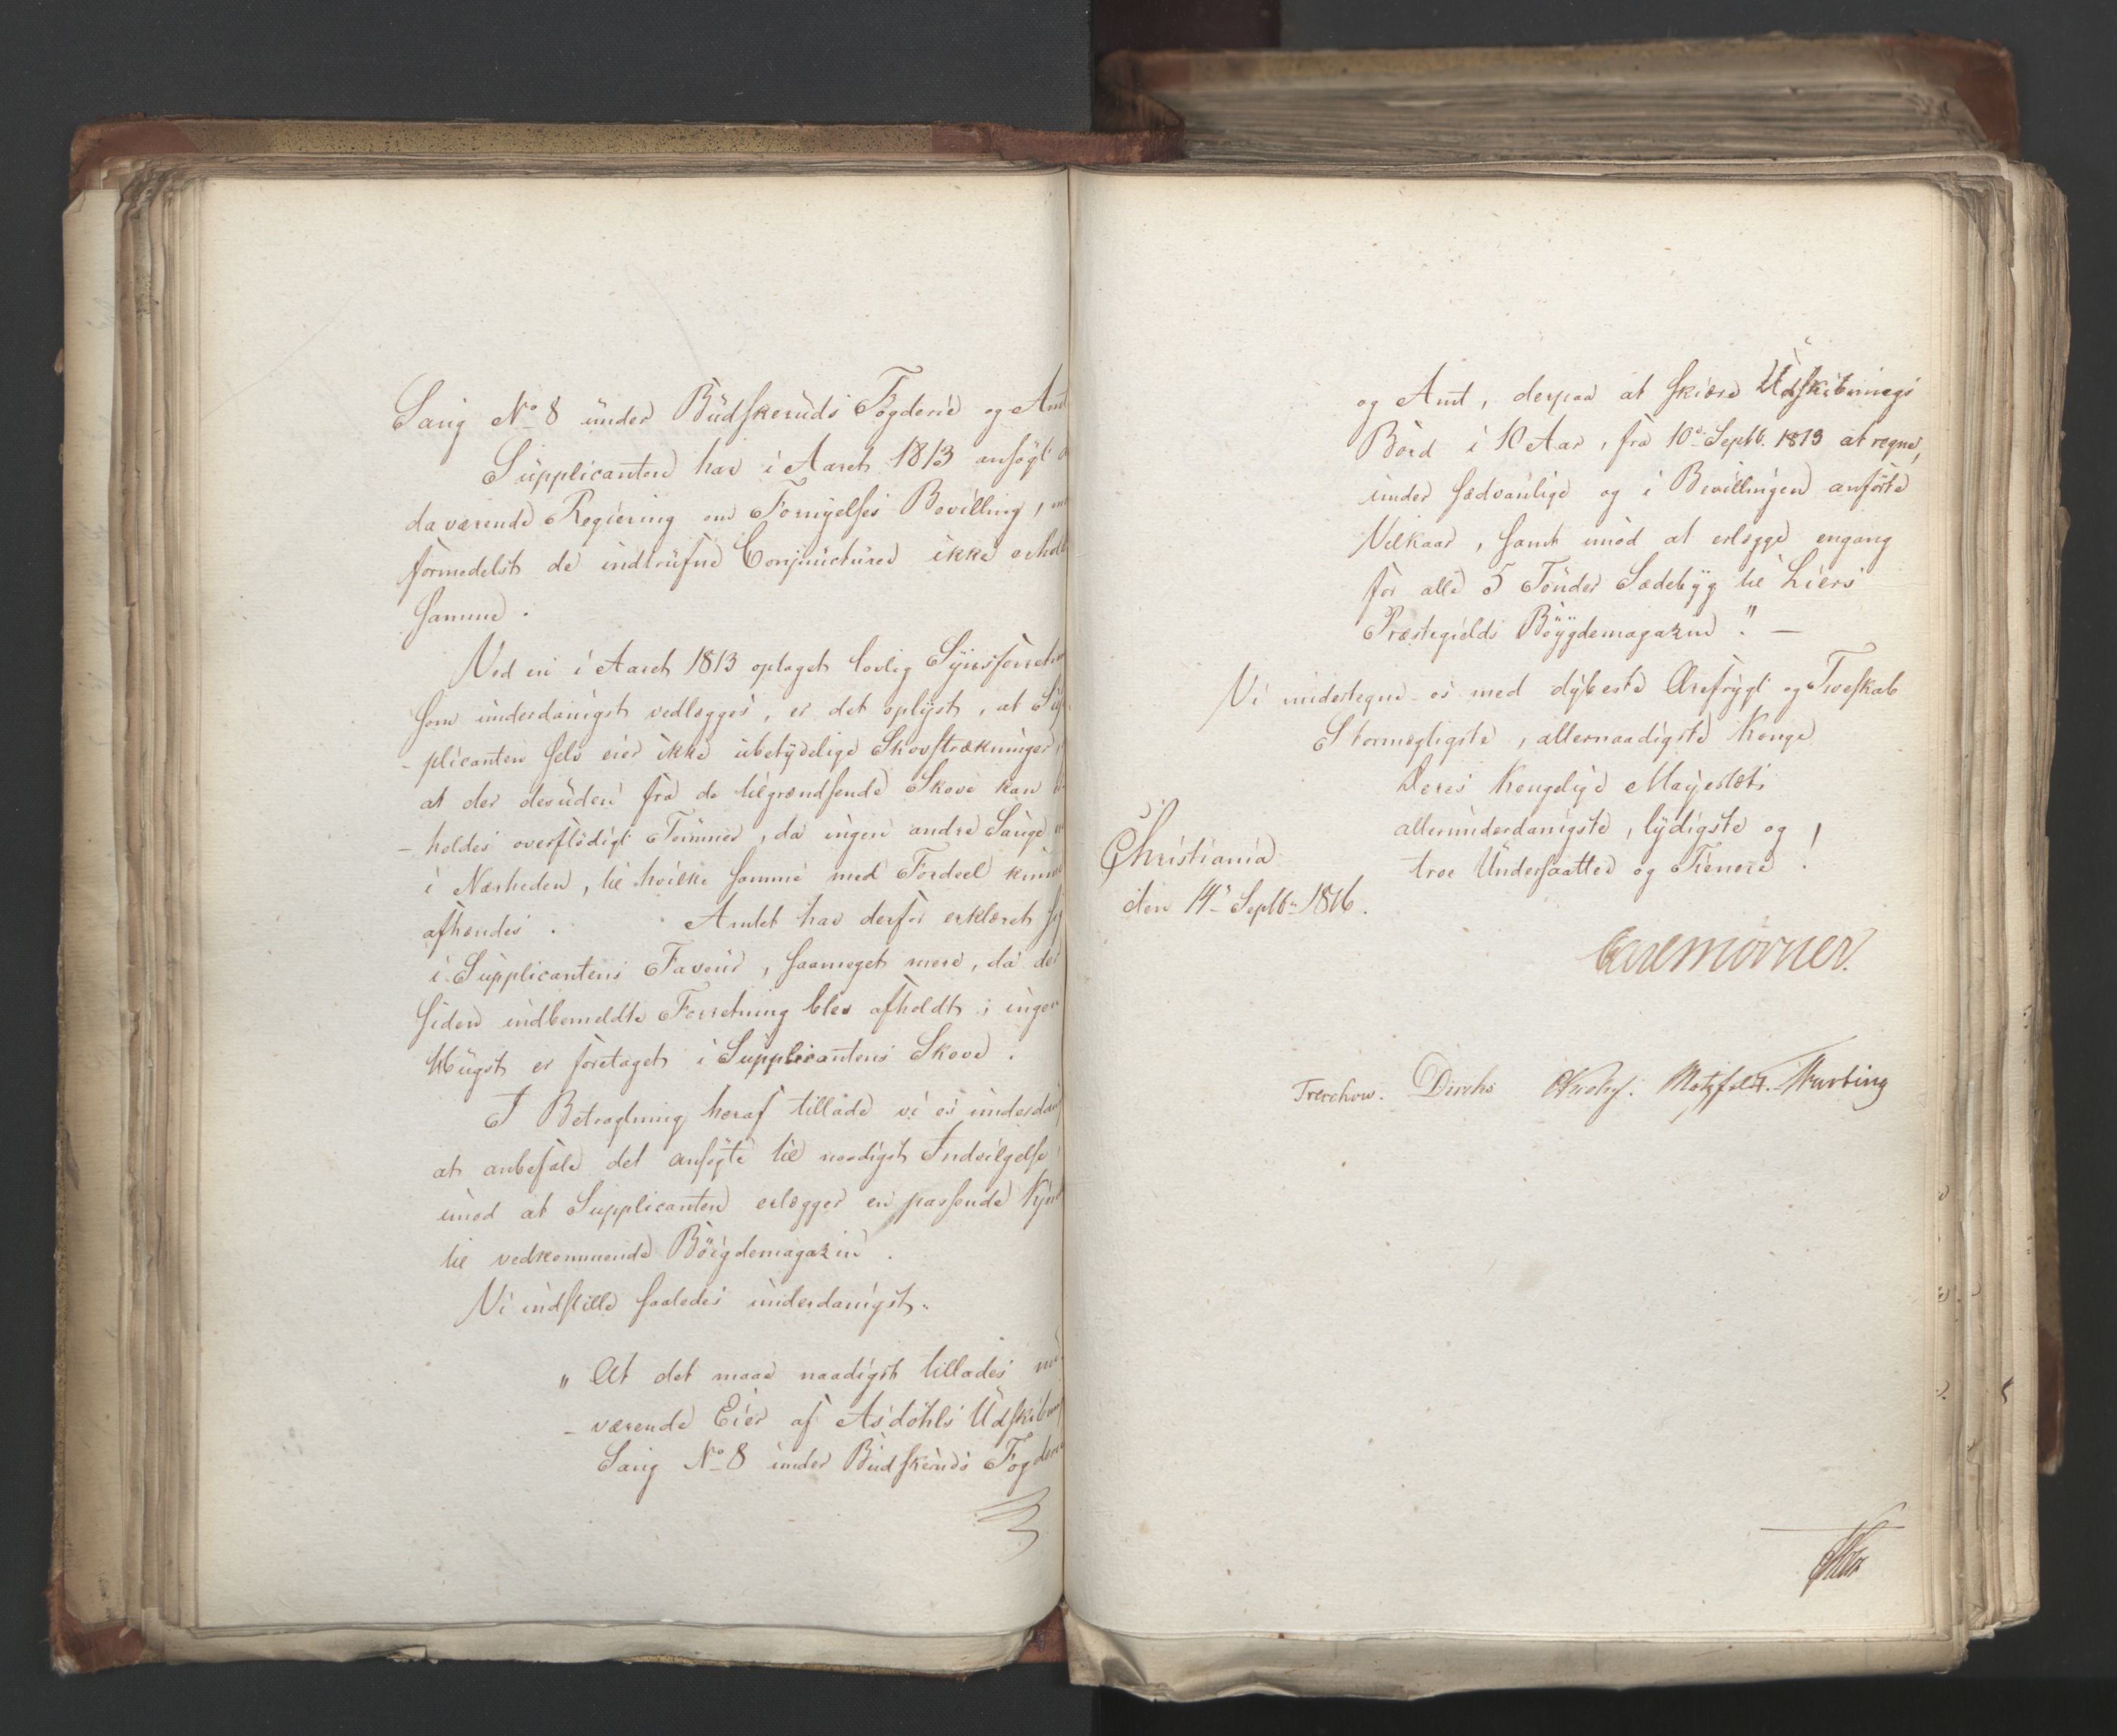 Saug No 8 under Budskeruds Fogderie og Amt
Supplicanten har i Aaret 1813 ansøgt
daværende Regiering om Fornyelses Bevilling,
formedelst de indtrufne Conjuncturer ikke erholdt
samme.
Ved en i Aaret 1813 optaget lovlig Synsforretn
som underdanigst vedlægges, er det oplyst, at Sup
-plicanten selv eier ikke ubetydelige Skovstrækninger,
at der desuden fra de tilgrændsende Skove kan
-holdes overflødigt Tømmer, da ingen andre Sauge
i Nærheden, til hvilke samme med Fordeel kunde
afhændes. Amtet har derfor erklæret sig
i Supplicantens Faveur, saameget mere, da der
siden indbemeldte Forretning blev afholdt, ingen
Hugst er foretaget i Supplicantens Skove.
I Betragtning heraf tillade vi os underdan
at anbefale det ansøgte til naadigst Indvilgelse
imod at Supplicanten erlægger en passende Kjend
til vedkommende Bøigdemagazin.
Vi indstille saaledes underdanigst.
"At det maae naadigst tillades nu
-værende Eier af Asdøhls Udskibn
Saug No 8 under Budskeruds Fogderie
og Amt, derpaa at skiære Udskibnings
Bord i 10 Aar, fra 10de Septb. 1813 at regne,
under sædvanlige og i Bevillingen anførte
Vilkaar, samt imod at erlægge engang
for alle 5 Tønder Sædebyg til Liers
Præstegields Bøygdemagazin". —
Vi undertegne os med dybeste Ærefrygt og Troeskab
Stormægtigste, allernaadigste Konge
Deres Kongelige Majestæts
allerunderdanigste, lydigste og
troe Undersaatter og Tienere!
Christiania
den 14de Septbr 1816.
Carl Mörner.
Treschow. Diriks Krohg. Motzfeldt.